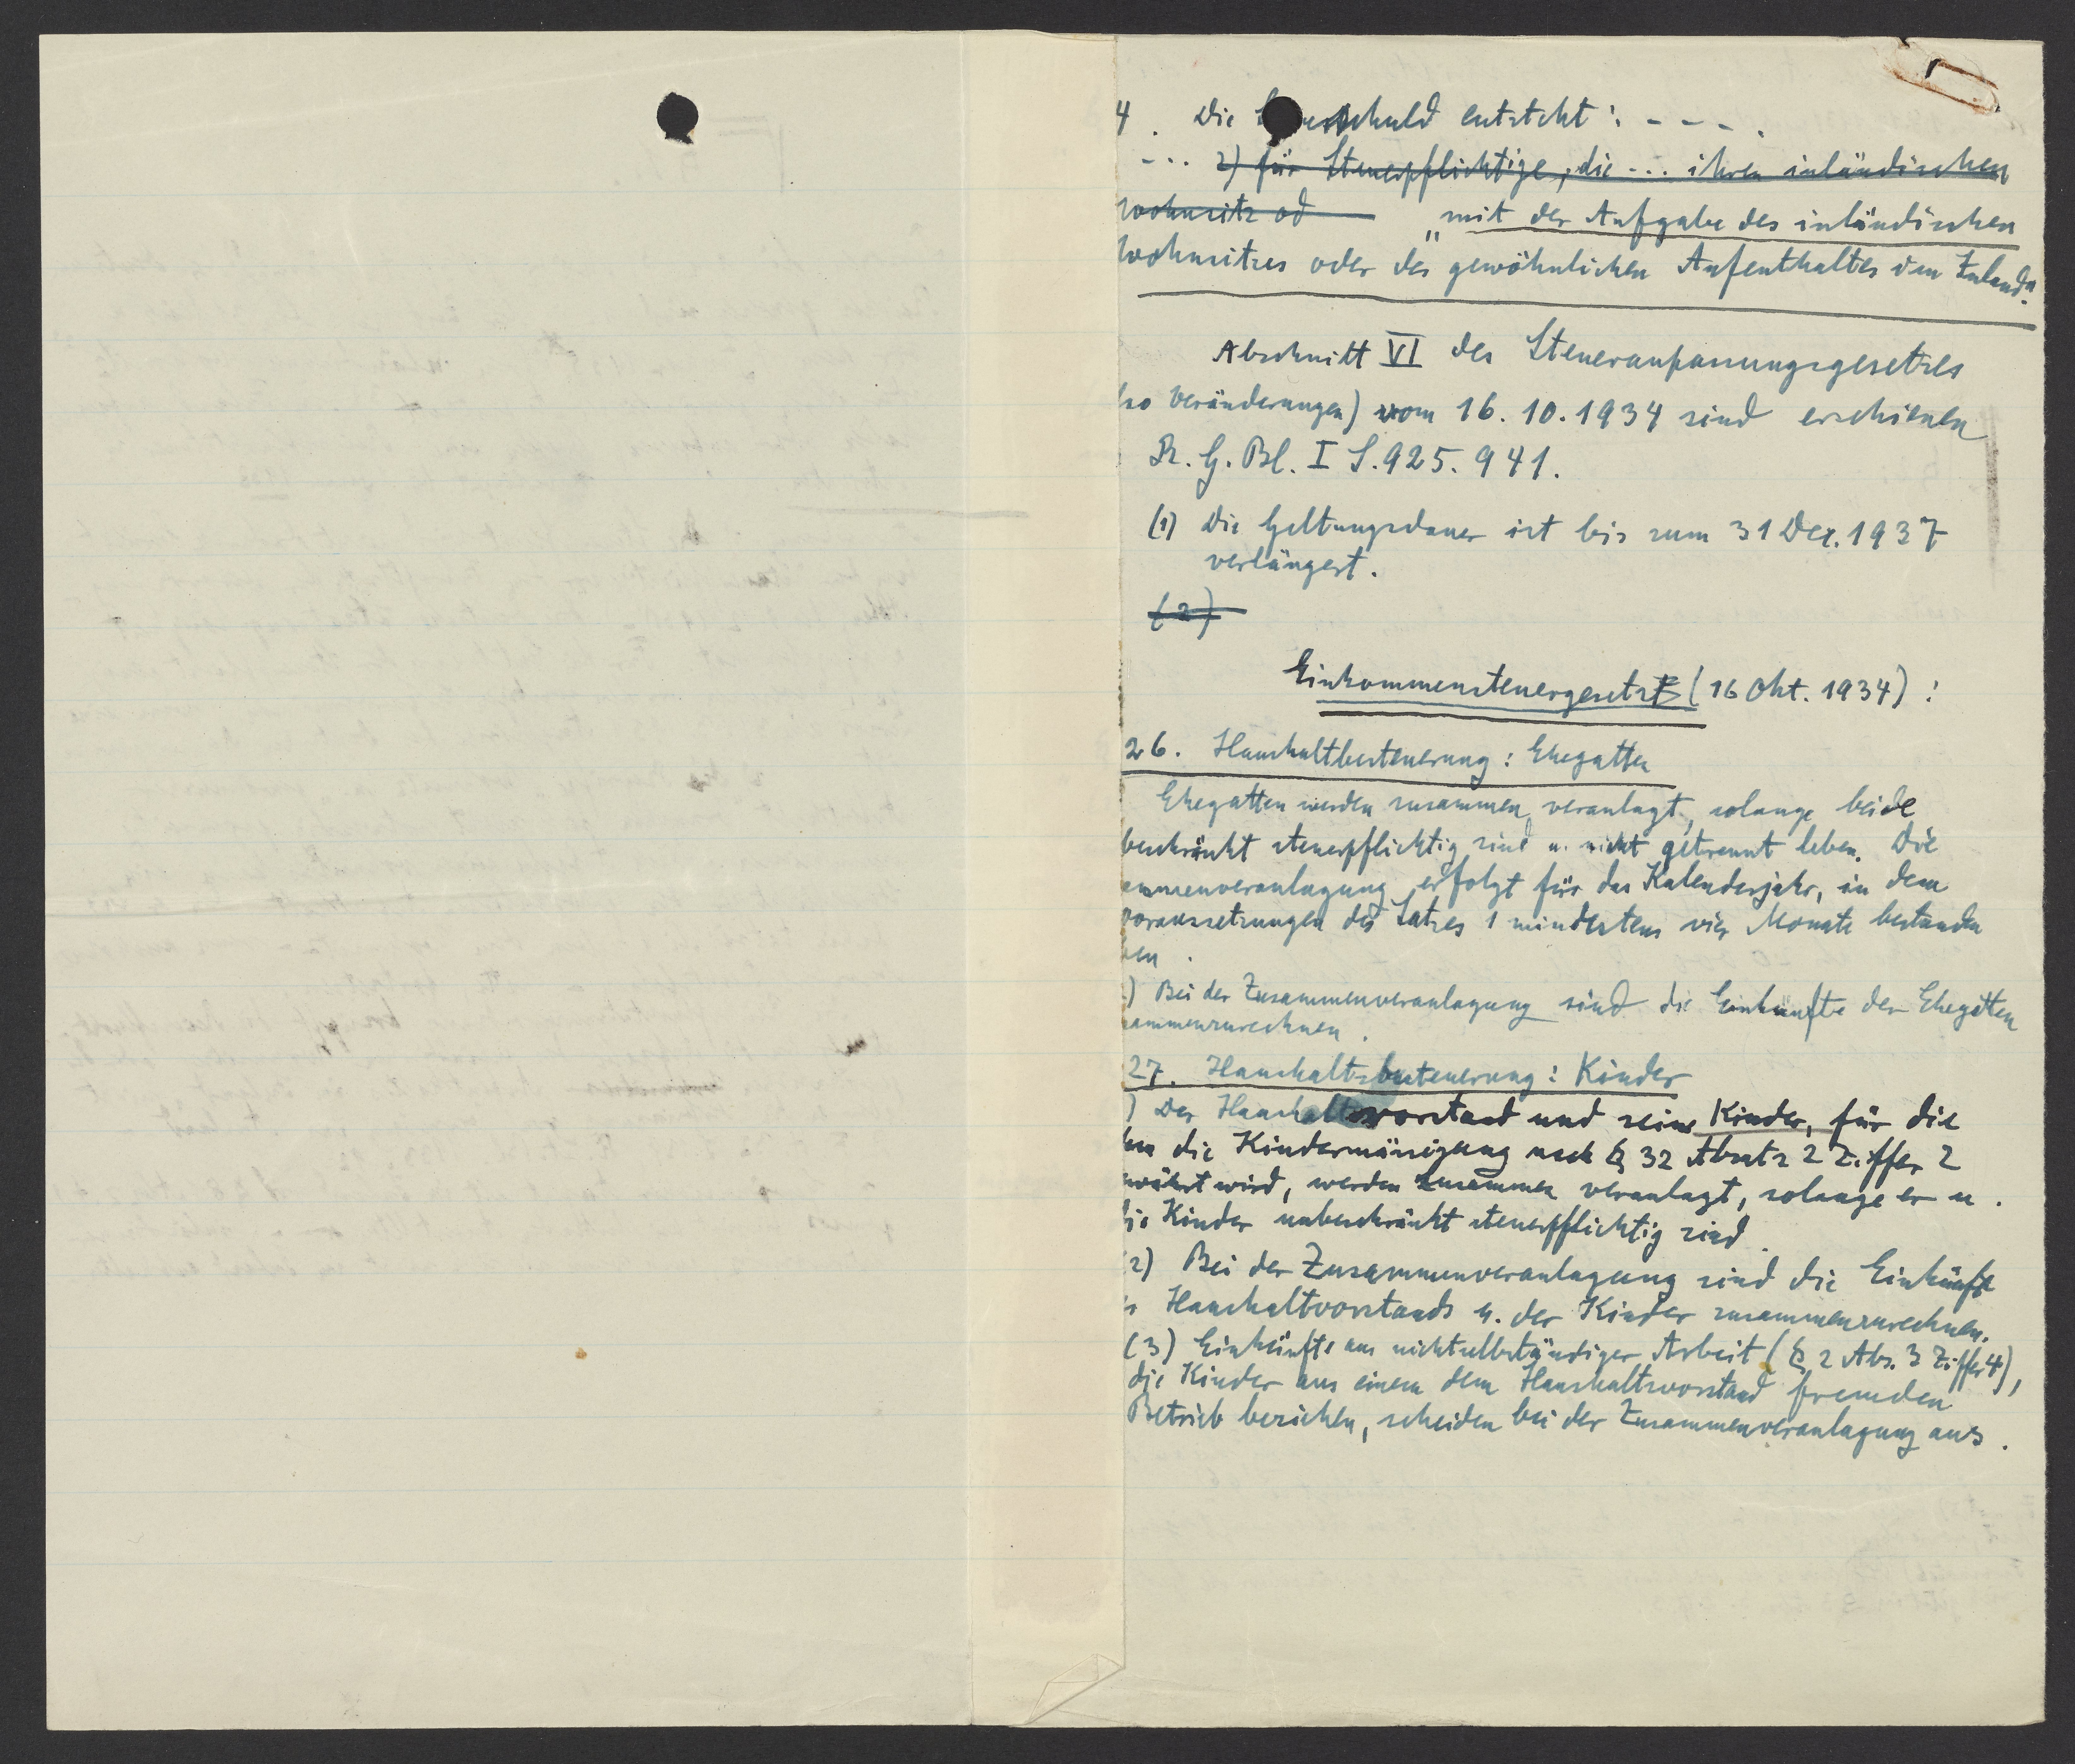 4. Die schuld entsteht: - - - .
- . . 2) für Steuerpflichtige, die - . . ihren inländischen
Wohnsitz od „mit der Aufgabe des inländischen
Wohnsitzes oder des gewöhnlichen Aufenthaltes im Inland."
Abschnitt VI des Steueranpassungsgesetzes
so Veränderungen) vom 16. 10. 1934 sind erschienen
R. G. Bl. I S. 925. 941.
(1) Die Geltungsdauer ist bis zum 31 Dez. 1937
verlängert.
(2)
Einkommensteuergesetz (16 Okt. 1934):
26. Haushaltbesteuerung: Ehegatten
Ehegatten werden zusammen veranlagt, solange beide
beschränkt steuerpflichtig sind u. nicht getrennt leben. Die
ammenveranlagung erfolgt für das Kalenderjahr, in dem
voraussetzungen des Satzes 1 mindestens vier Monate bestanden
en.
) Bei der Zusammenveranlagung sind die Einkünfte der Ehegatten
ammenzurechnen.
27. Haushaltsbesteuerung: Kinder
) Der Haushaltsvorstand und seine Kinder, für die
die Kinderermässigung nach § 32 Absatz 2 Ziffer 2
währt wird, werden zusammen veranlagt, solange er u.
die Kinder unbeschränkt steuerpflichtig sind.
2) Bei der Zusammenveranlagung sind die Einkünfte
s Haushaltvorstands u. der Kinder zusammenzurechnen.
(3) Einkünfte aus nichtselbständiger Arbeit (§ 2 Abs. 3 Ziffer 4),
die Kinder aus einem dem Haushaltsvorstand fremden
Betrieb beziehen, scheiden bei der Zusammenveranlagung aus.